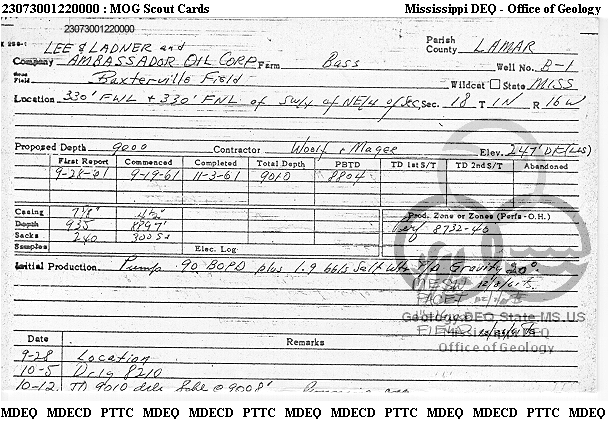 23073001220000 : MOG Scout Cards Mississippi DEQ - Office of Geology
LEE & LADNER and Parish
Company AMBASSADOR OIL CORP. Farm Bass County LAMAR
Well No. B-1
Field Baxterville Field Wildcat State MISS
Location 330' FWL + 330' FNL of SW/4 of NE/4 of Sec, Sec. 18 T 1N R 16W
Proposed Depth 9000 Contractor Woolf & Magee Elev. 247' DF
First Report Commenced Completed Total Depth PBTD TD 1st S/T TD 2nd S/T Abandoned
9-28-61 9-19-61 11-3-61 9010 8804
Casing 7 5/8" 4 1/2" Prod. Zone or Zones (Perfs-O.H.)
Depth 935 8897' Perf 8732-40
Sacks 240 300 sx
Samples Elec. Log
Initial Production Pump 90 BOPD plus 1.9 bbls Salt Wtr Gravity 20°
Geology.DEQ.State.MS.US
Office of Geology
Date Remarks
9-28 Location
10-5 Drlg 8210
10-12 TD 9010
MDEQ MDECD PTTC MDEQ MDECD PTTC MDEQ MDECD PTTC MDEQ MDECD PTTC MDEQ